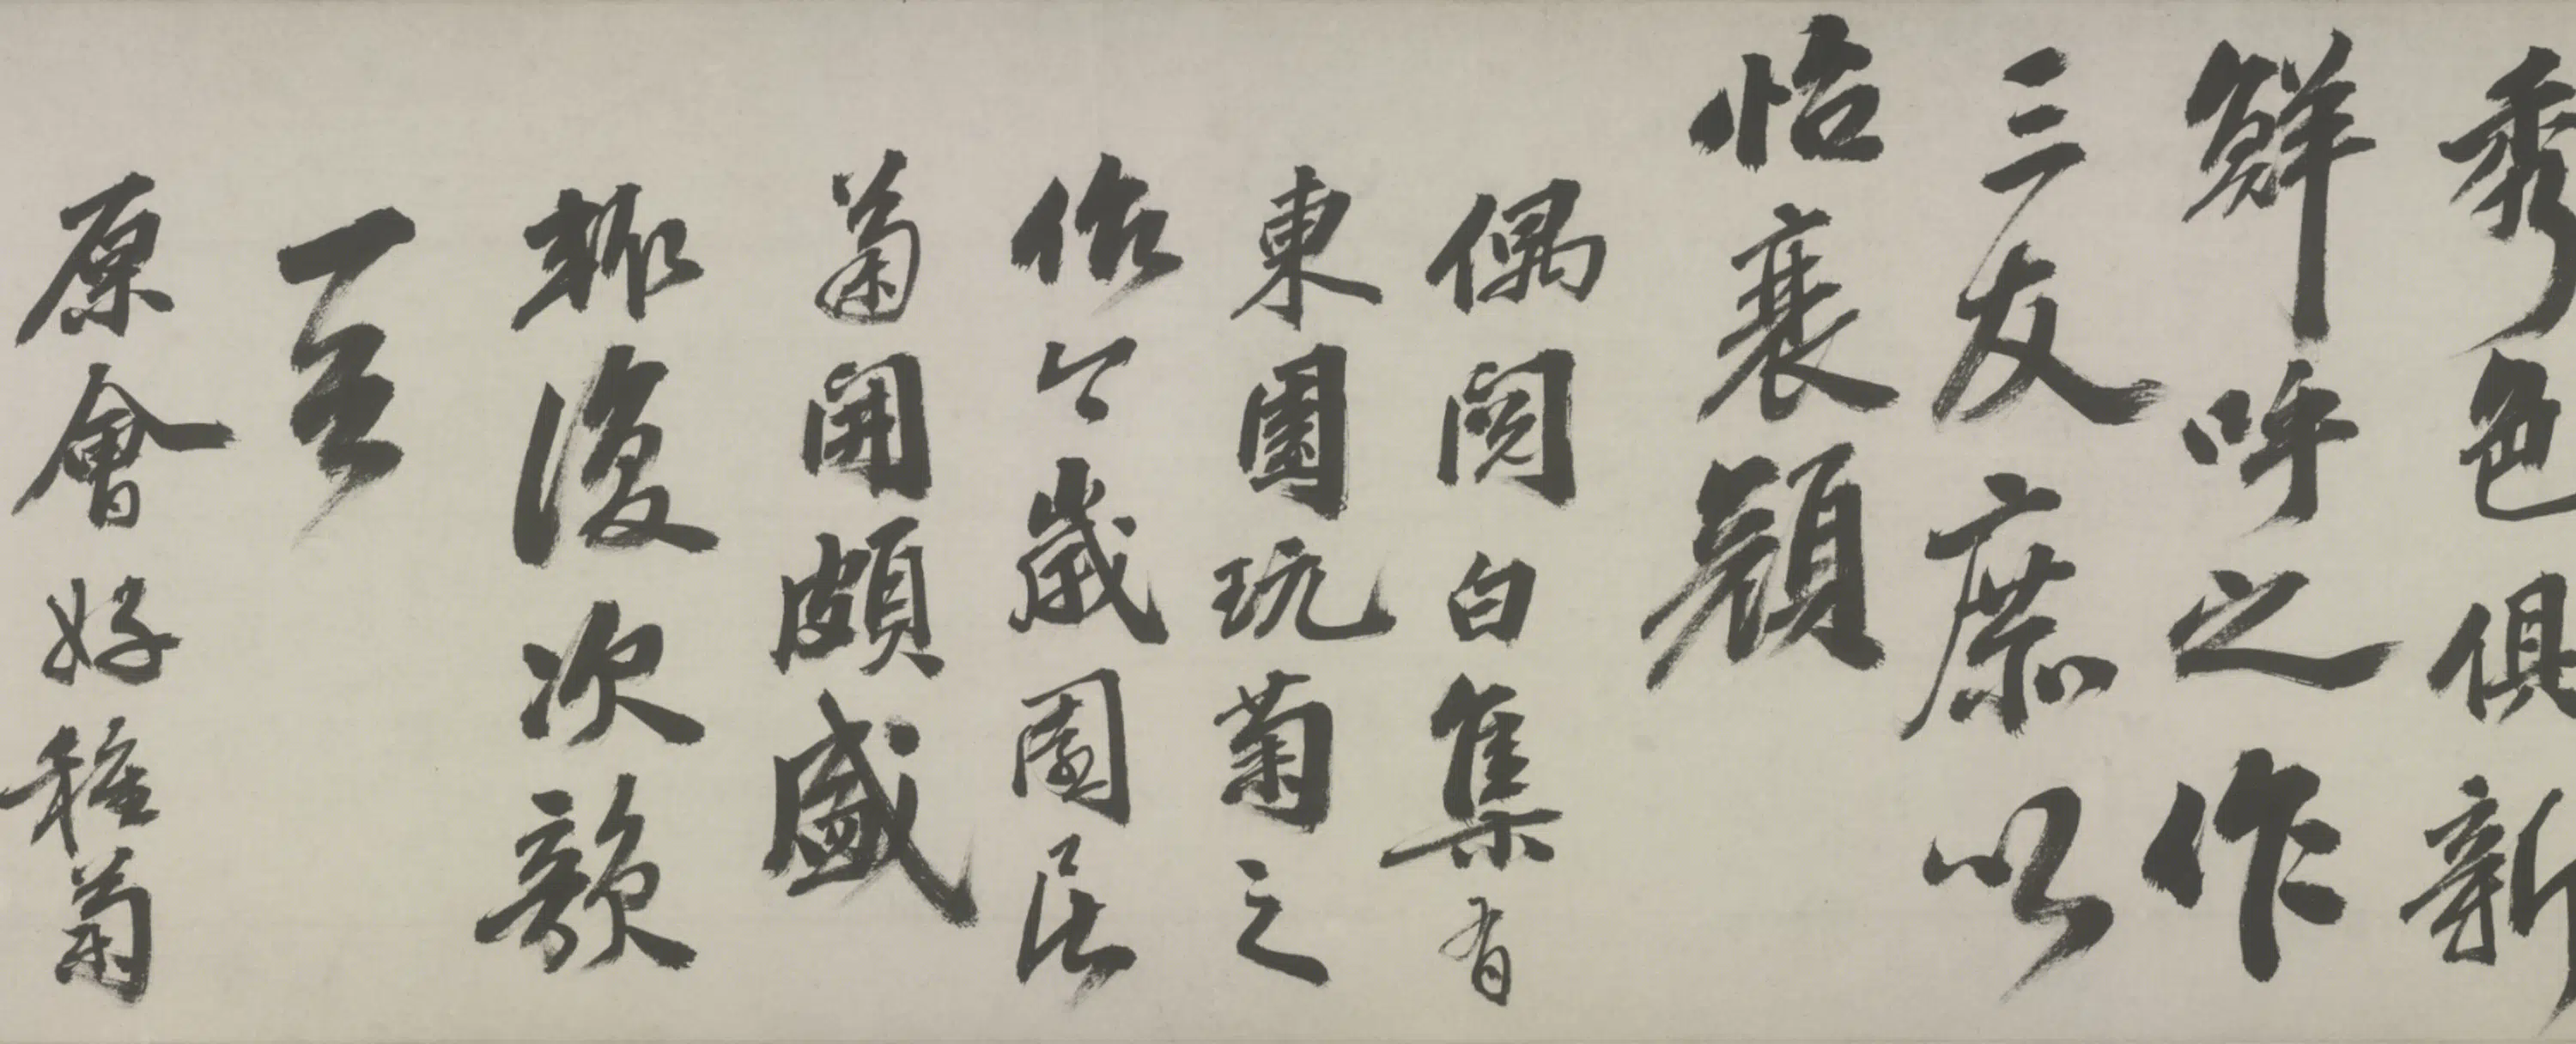 秀色俱新
鮮呼之作
三友庶以
怡衰顏
偶閱白集有
東園玩菊之
作今歲園居
菊開頗盛
輒復次韻
一首
原會好種菊